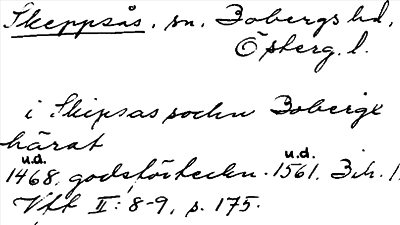 Skeppsås, sn. Bobergs hd,
Österg. l.
i Skipsas sochn Bobergx
härat
u.d. u.d.
1468. godsförteckn. 1561. Bih. 1
Vff II: 8-9, s. 175.